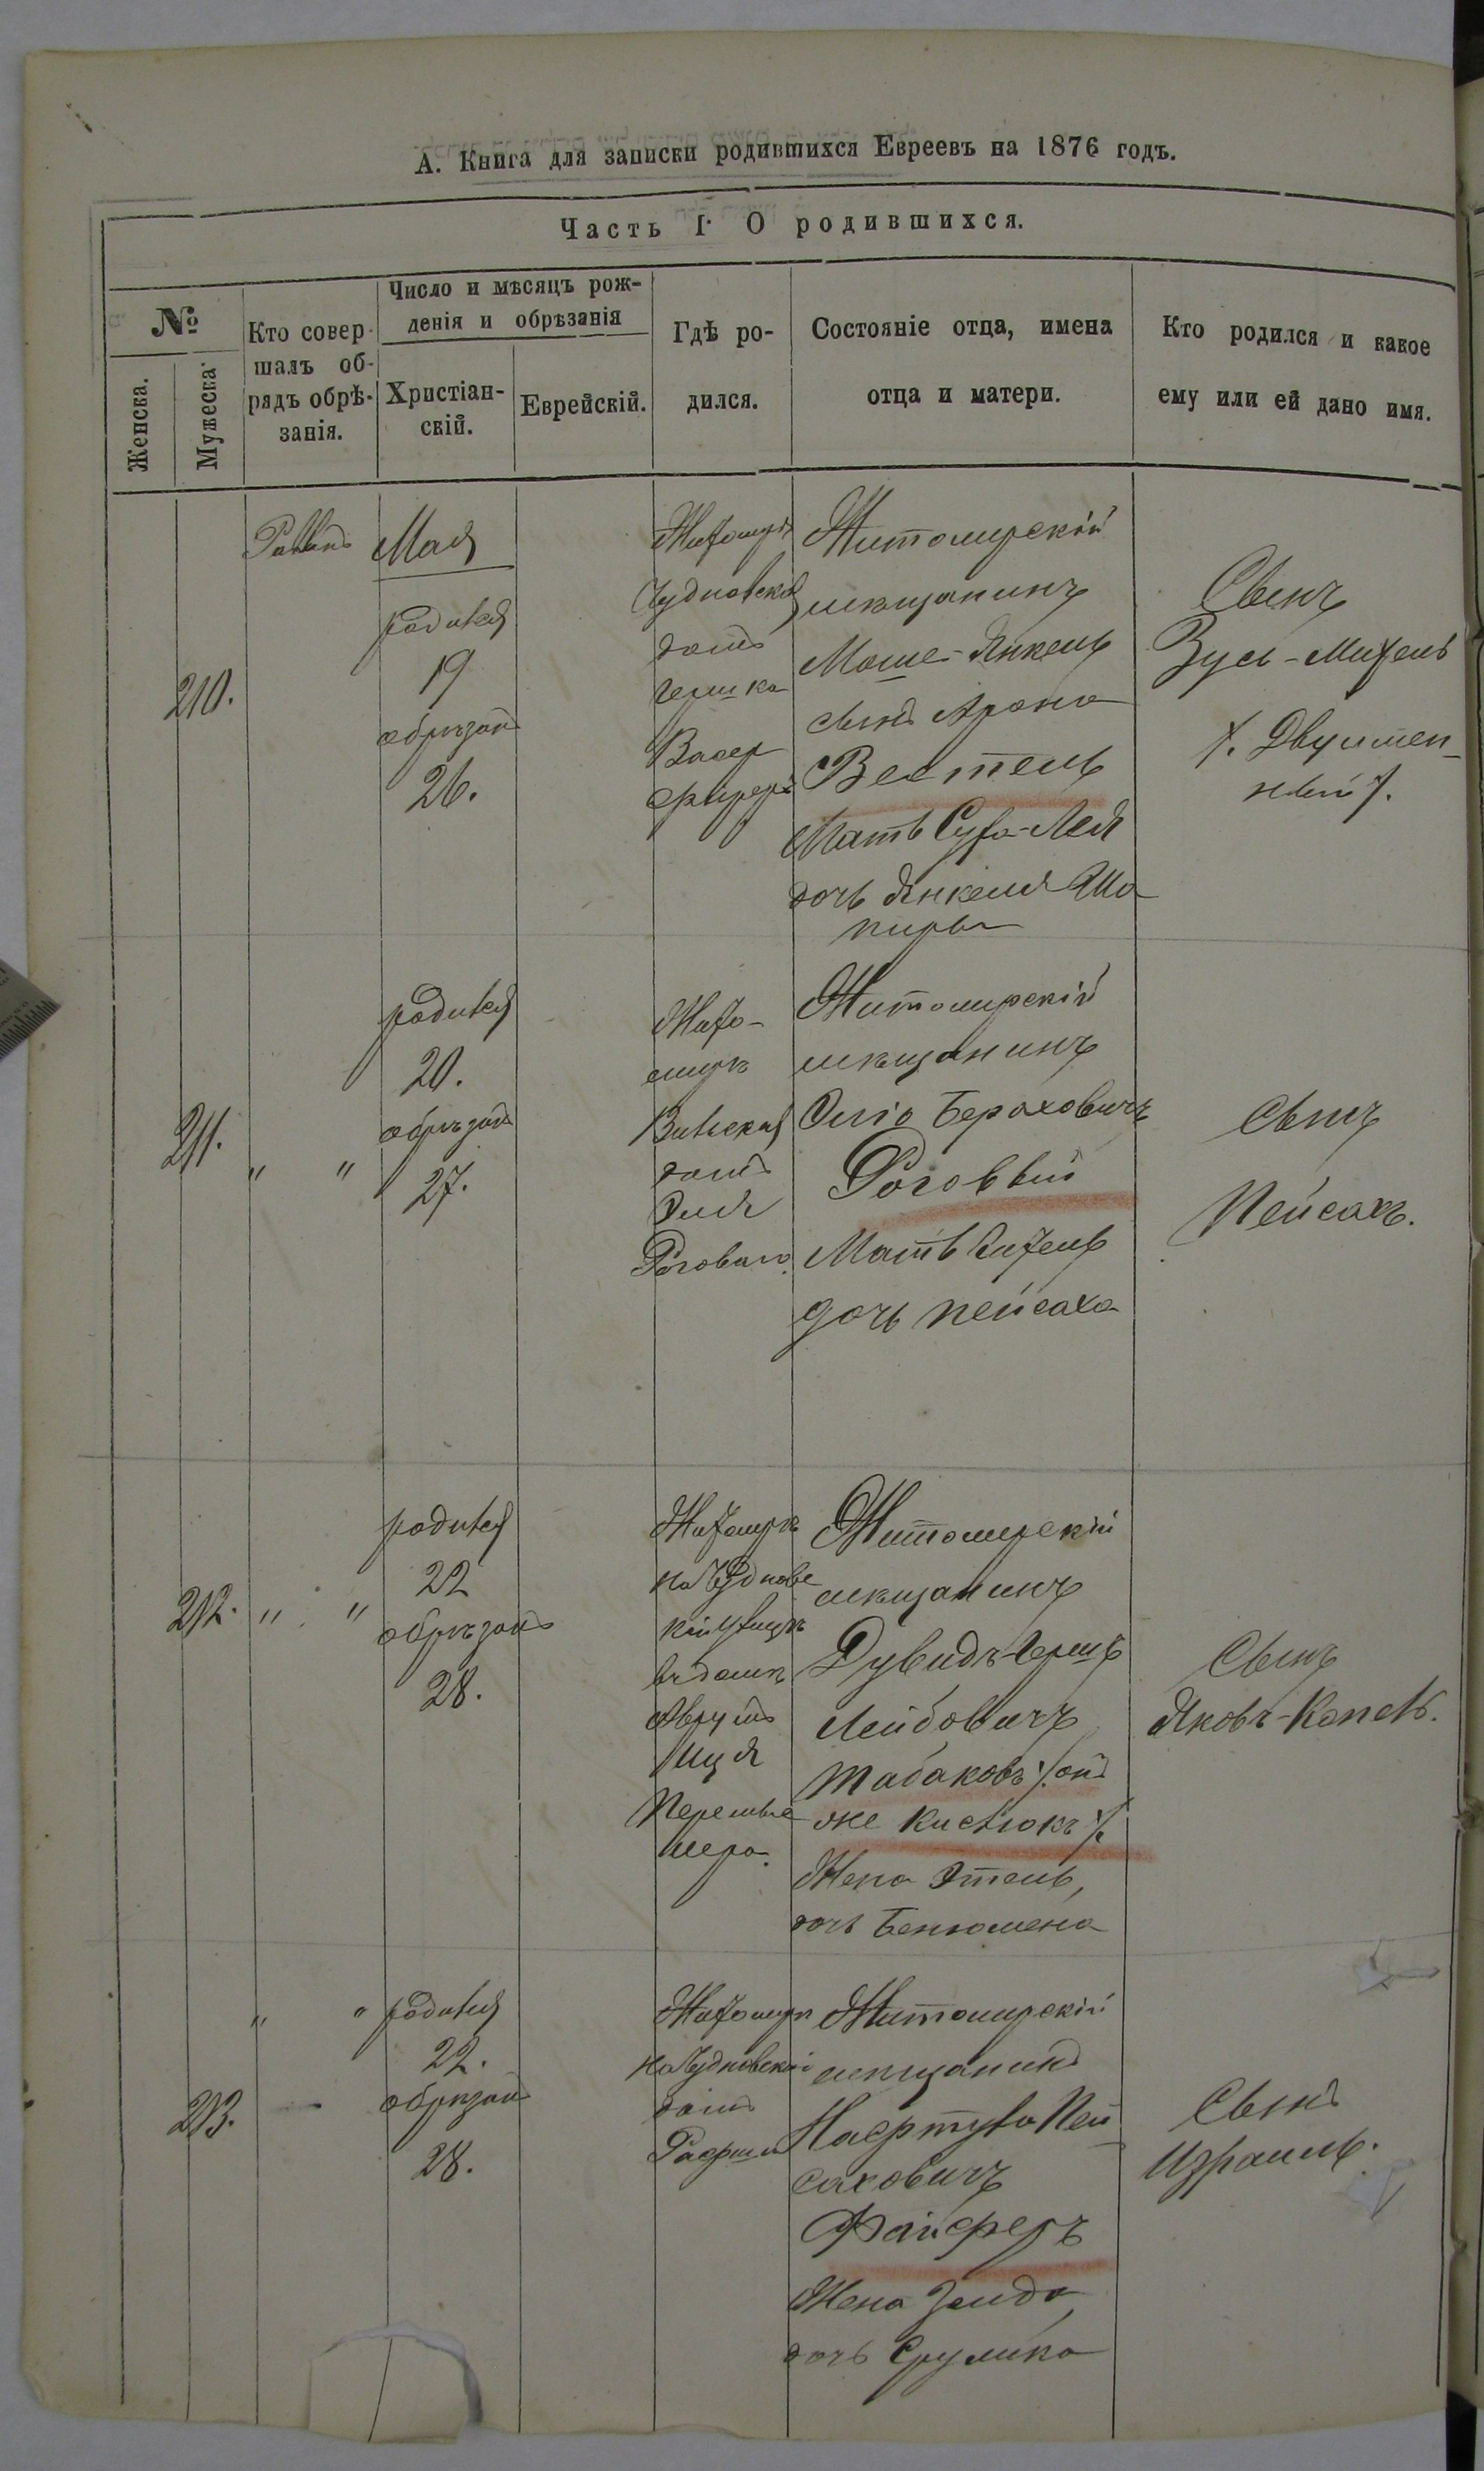 А. Книга для записки родившихся Евреевъ на 1876 годъ.
Часть I. О родившихся.
№
Женска.
Мужеска.
Кто совер-
шалъ об-
рядъ обрѣ-
занія.
Число и мѣсяцъ рож-
денія и обрѣзанія
Христіан-
скій.
Еврейскій.
Гдѣ ро-
дился.
Состояніе отца, имена
отца и матери.
Кто родился и какое
ему или ей дано имя.
210.
Мая
родился
19
обрѣзанъ
26.
Житомиръ
Чудновская
домъ
Гершка
Васер
Житомирскій
мѣщанинъ
Моше-Янкель
сынъ Арона
Вестель
Мать Сура-Лея
дочь Янкеля Ша
пиры
Сынъ
Зусь-Михель
/. Двуимен-
ный /.
211.
" "
родился
20.
обрѣзанъ
27.
Жито-
мирѣ
Вильская
домъ
Эля
Рогового.
Житомирскій
мѣщанинъ
Эліо Бероховичъ
Роговый
Мать
дочь Пейсаха
Сынъ
Пейсахъ.
212.
" "
родился
22
обрѣзанъ
28.
Житомирѣ
на Чудновс
кой улицѣ
въ домѣ
Житомирскій
мѣщанинъ
Дувидъ-Гершъ
Лейбовичъ
Табаковъ /. онъ
же Кислюкъ /.
Жена Этель,
дочь Бенюмена
Сынъ
Яковъ-Копель.
213.
" "
родился
22.
обрѣзанъ
28.
Житомирѣ
на Чудновской
домъ
Житомирскій
мѣщанинъ
Пей
саховичъ
Файферъ
Жена Зелда
дочь Срулика
Сынъ
Израиль.